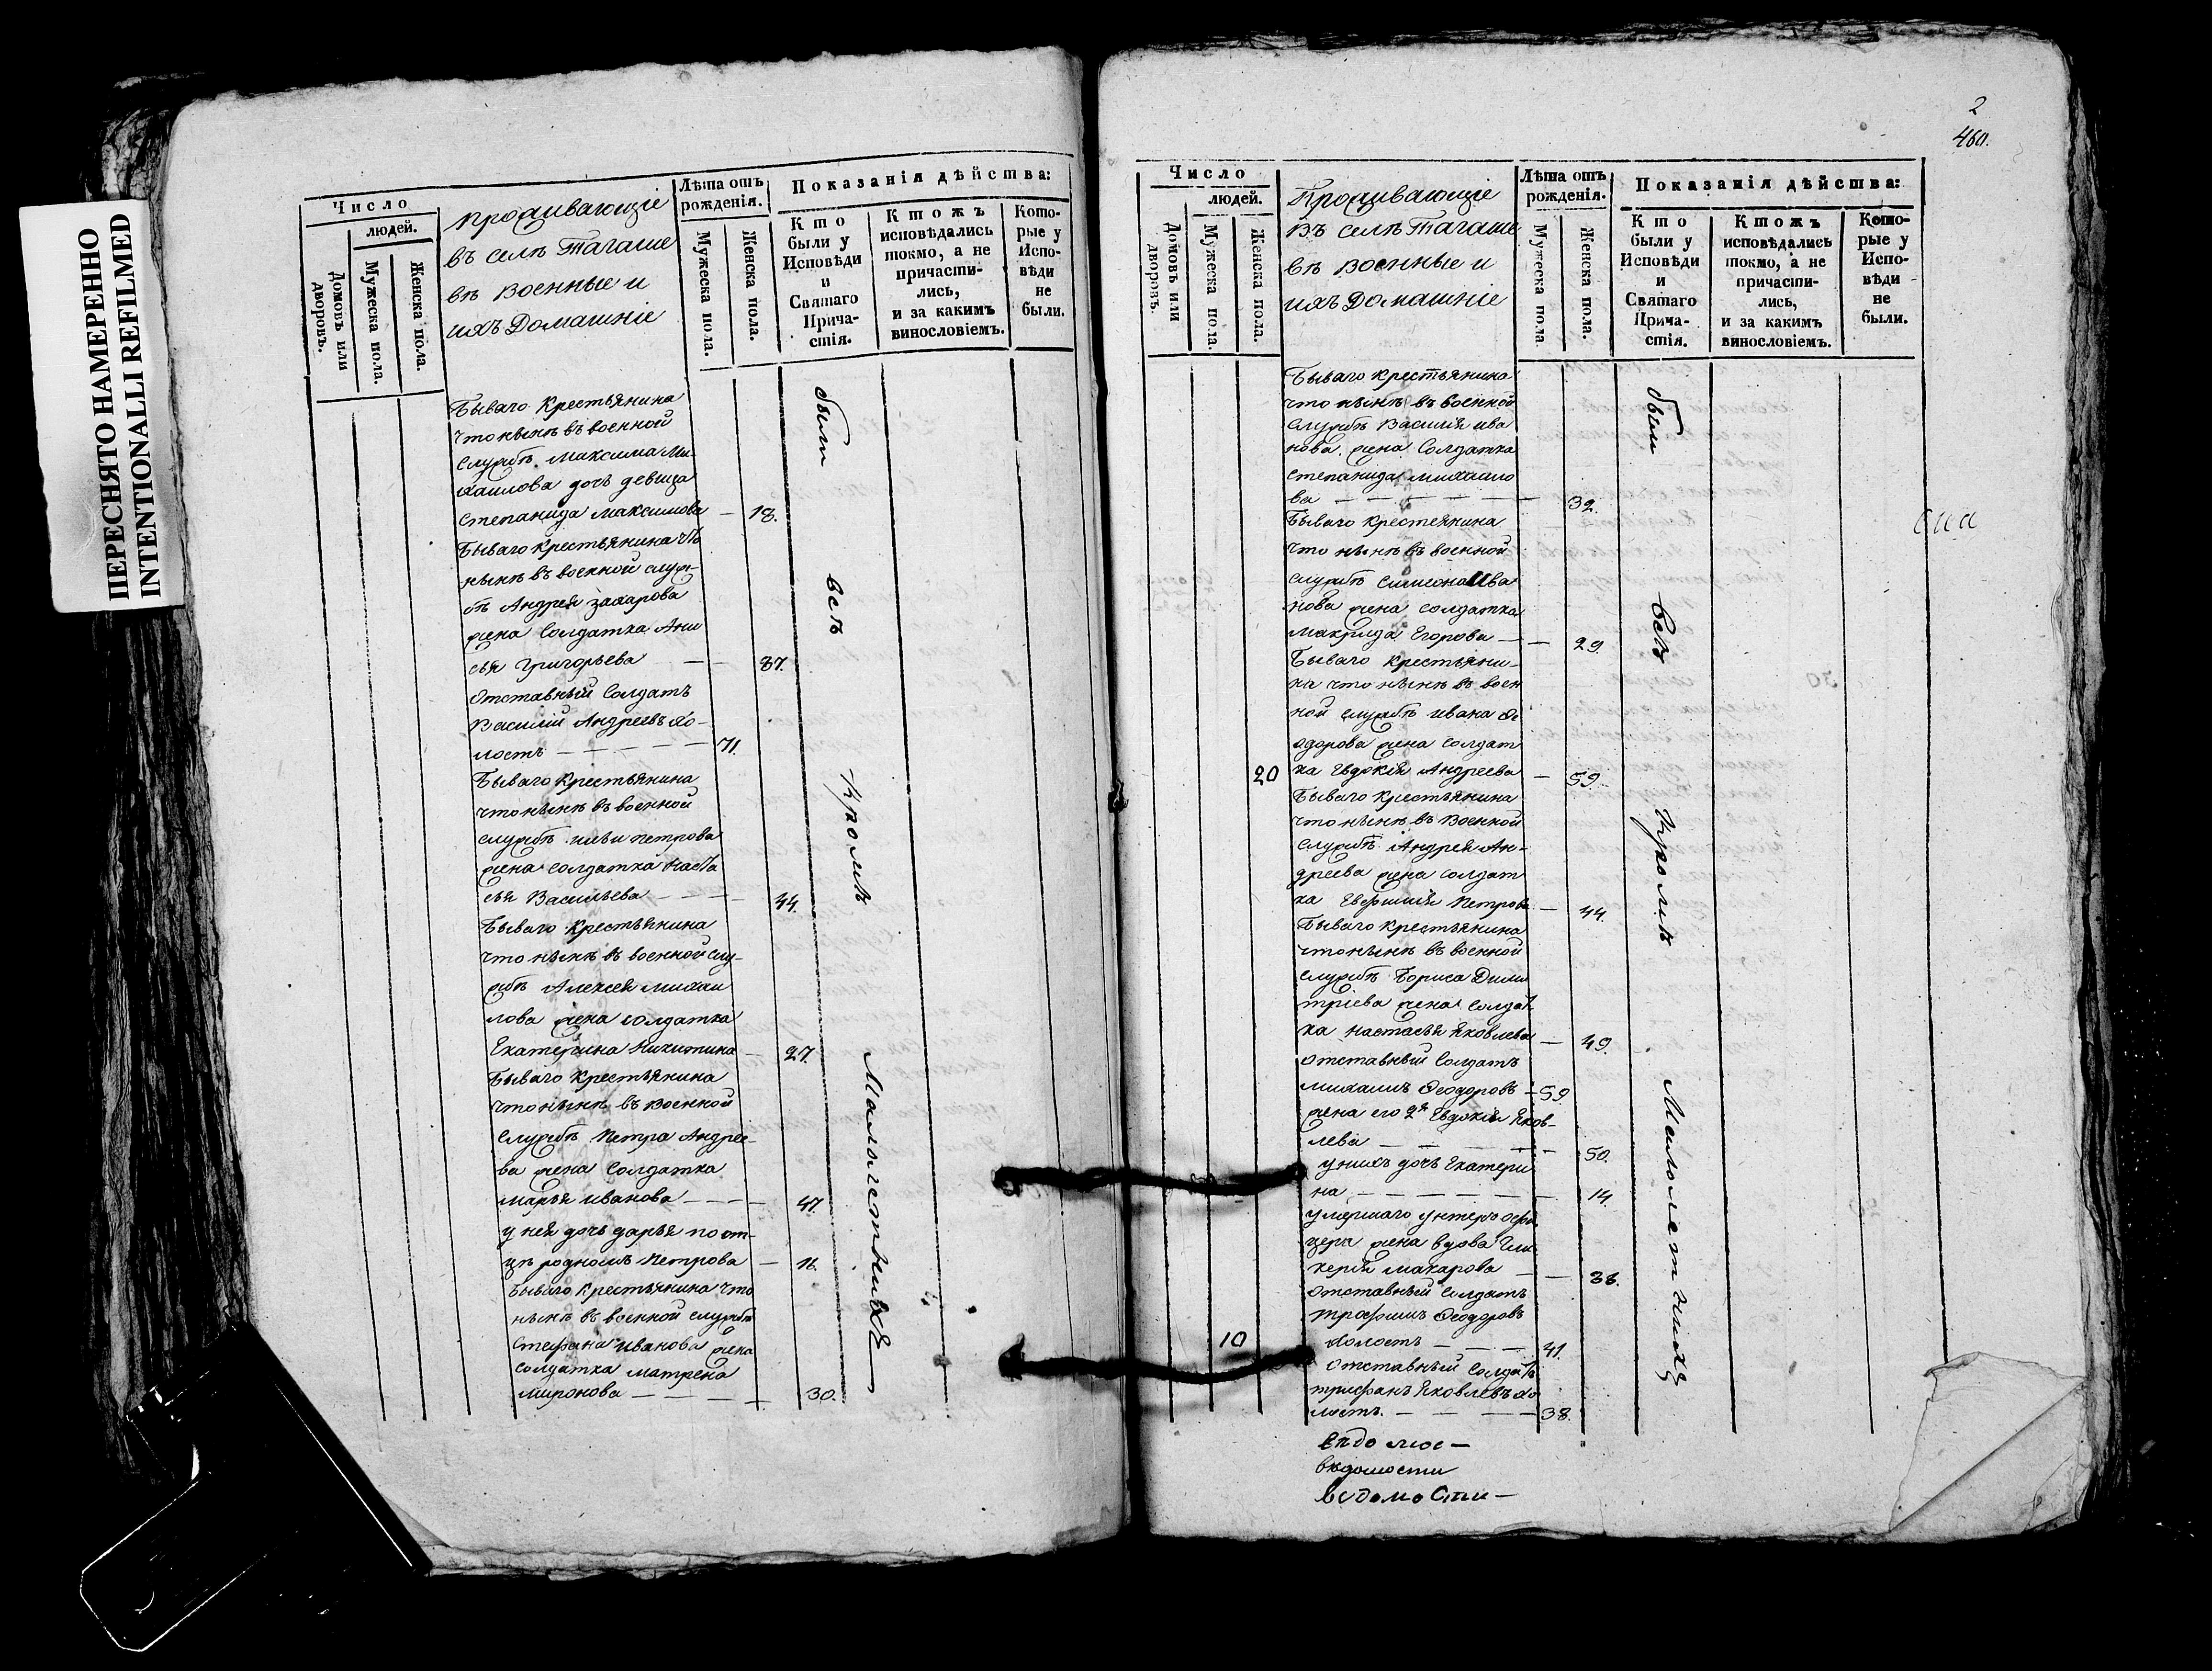 ПЕРЕСНЯТО НАМЕРЕННО
INTENTIONALLI REFILMED
Число
людей.
Домовъ или дворовъ.
Мужеска пола.
Женска пола.
Проживающіе
въ селѣ Тагаше
вѣ военные и
ихъ домашніе
Лѣта отъ
рожденія.
Мужеска пола.
Женска пола.
Показанія дѣйства:
Кто
были у
Исповѣди
и
Святаго
Прича-
стія.
Ктожъ
исповѣдались
токмо, а не
причасти-
лись,
и за какимъ
винословіемъ.
Кото-
рые у
Испо-
вѣди
не
были.
Бываго крестьянина
что нынѣ въ военной
службѣ Максима Ми-
хаилова дочь девица
Степанида Максимова — 18.
Бываго крестьянина что
нынѣ въ военной служ-
бѣ Андрея Захарова
жена солдатка Ани
сья Григорьева — — 37.
Отставный солдатъ
Василий Андреевъ хо-
лостъ — — — — — 71.
Бываго крестьянина
что нынѣ въ военной
службѣ Ильи Петрова
жена солдатка Наста
сья Васильева — — — 44.
Бываго крестьянина
что нынѣ въ военной слу-
жбѣ Алексея Михаи
лова жена солдатка
Екатерина Никитина — 27.
Бываго крестьянина
что нынѣ въ военной
службѣ Петра Андрее-
ва жена солдатка
Марья Иванова — — — 47.
у нея дочь Дарья по от-
цѣ родномъ Петрова — 16.
Бываго крестьянина что
нынѣ въ военной службѣ
Стефана Иванова жена
солдатка Матрена
Миронова — — — — 30.
были всѣ кромѣ Малолетнихъ
2
460.
Число
людей.
Домовъ или дворовъ.
Мужеска пола.
Женска пола.
Проживающіе
въ селѣ Тагаше
вѣ военные и
ихъ домашніе
Лѣта отъ
рожденія.
Мужеска пола.
Женска пола.
Показанія дѣйства:
Кто
были у
Исповѣди
и
Святаго
Прича-
стія.
Ктожъ
исповѣдались
токмо, а не
причасти-
лись,
и за какимъ
винословіемъ.
Кото-
рые у
Испо-
вѣди
не
были.
Бываго крестьянина
что нынѣ въ военной
службѣ Василия Ива
нова жена солдатка
Степанида Михаило
ва — — — — — — 32.
Бываго крестьянина
что нынѣ въ военной
службѣ Симеона Ива
нова жена солдатка
Макрида Егорова — — 29.
Бываго крестьяни-
на что нынѣ въ воен
ной службѣ Ивана Ѳе
одорова жена солдат
20 ка Евдокия Андреева — 59.
Бываго крестьянина
что нынѣ въ военной
службѣ Андрея Ан-
дреева жена солдат
ка Евфимия Петрова — 44.
Бываго крестьянина
что нынѣ въ военной
службѣ Бориса Дими
тріева жена солдат
ка Настасья Яковлева — 49.
Отставный солдатъ
Михаилъ Ѳеодоровъ — 59
жена его 2я Евдокия Яков-
лева — — — — 50.
у нихъ дочь Екатери
на — — — — — — 14.
умершаго унтеръ офи
цера жена вдова Гли
керия Макарова — — 38.
Отставный солдатъ
Трофимъ Ѳеодоровъ
10 холостъ — — — 41.
Отставный солдатъ
Трифанъ Яковлевъ хо
лостъ. — — — — 38.
были всѣ кромѣ Малолетнихъ
ведомости
ведомости —